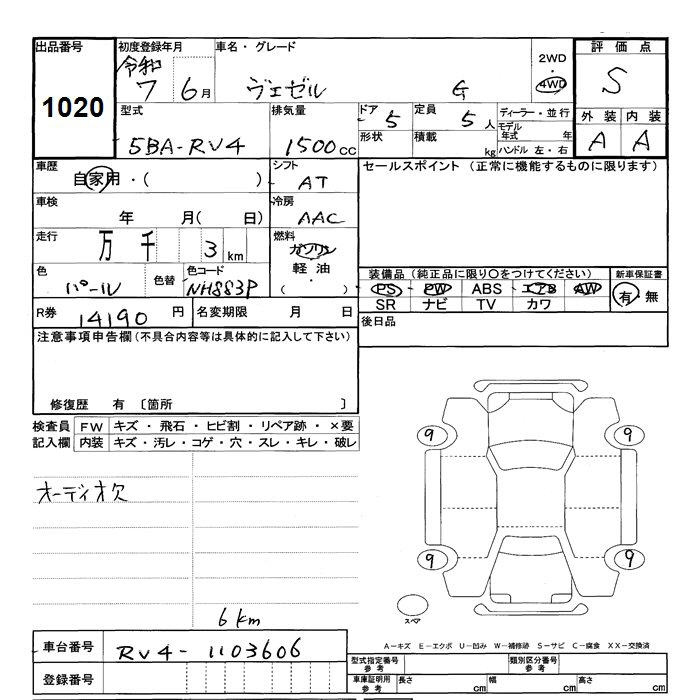 出品番号 初度登録年月 車名・グレード 2WD 評価点
1020 令和 7 6月 ヴェゼル G 4WD S
型式 排気量 ドア 5 定員 5人 ディーラー・並行 外装 内装
5BA-RV4 1500cc 形状 積載 kg モデル年式 年 A A
ハンドル 左・右
車歴 自家用・( ) シフト AT セールスポイント (正常に機能するものに限ります)
車検 年 月( 日) 冷房 AAC
走行 万 千 3 km 燃料 ガソリン・軽油・( )
色 パール 色替 色コード NH883P
装備品 (純正品に限り〇をつけてください) 新車保証書
PS PW ABS エアB AW 有・無
SR ナビ TV カワ
R券 14190 円 名変期限 月 日 後日品
注意事項申告欄 (不具合内容等は具体的に記入して下さい)
修復歴 有 〔箇所 〕
検査員 FW キズ・飛石・ヒビ割・リペア跡・×要
記入欄 内装 キズ・汚レ・コゲ・穴・スレ・キレ・破レ
9 9
オーディオ欠
9 9
スペア
6km
車台番号 RV4-1103606
A-キズ E-エクボ U-凹み W-補修跡 S-サビ C-腐食 XX-交換済
型式指定番号 参考 類別区分番号 参考
登録番号 車庫証明用 参考 長さ cm 幅 cm 高さ cm